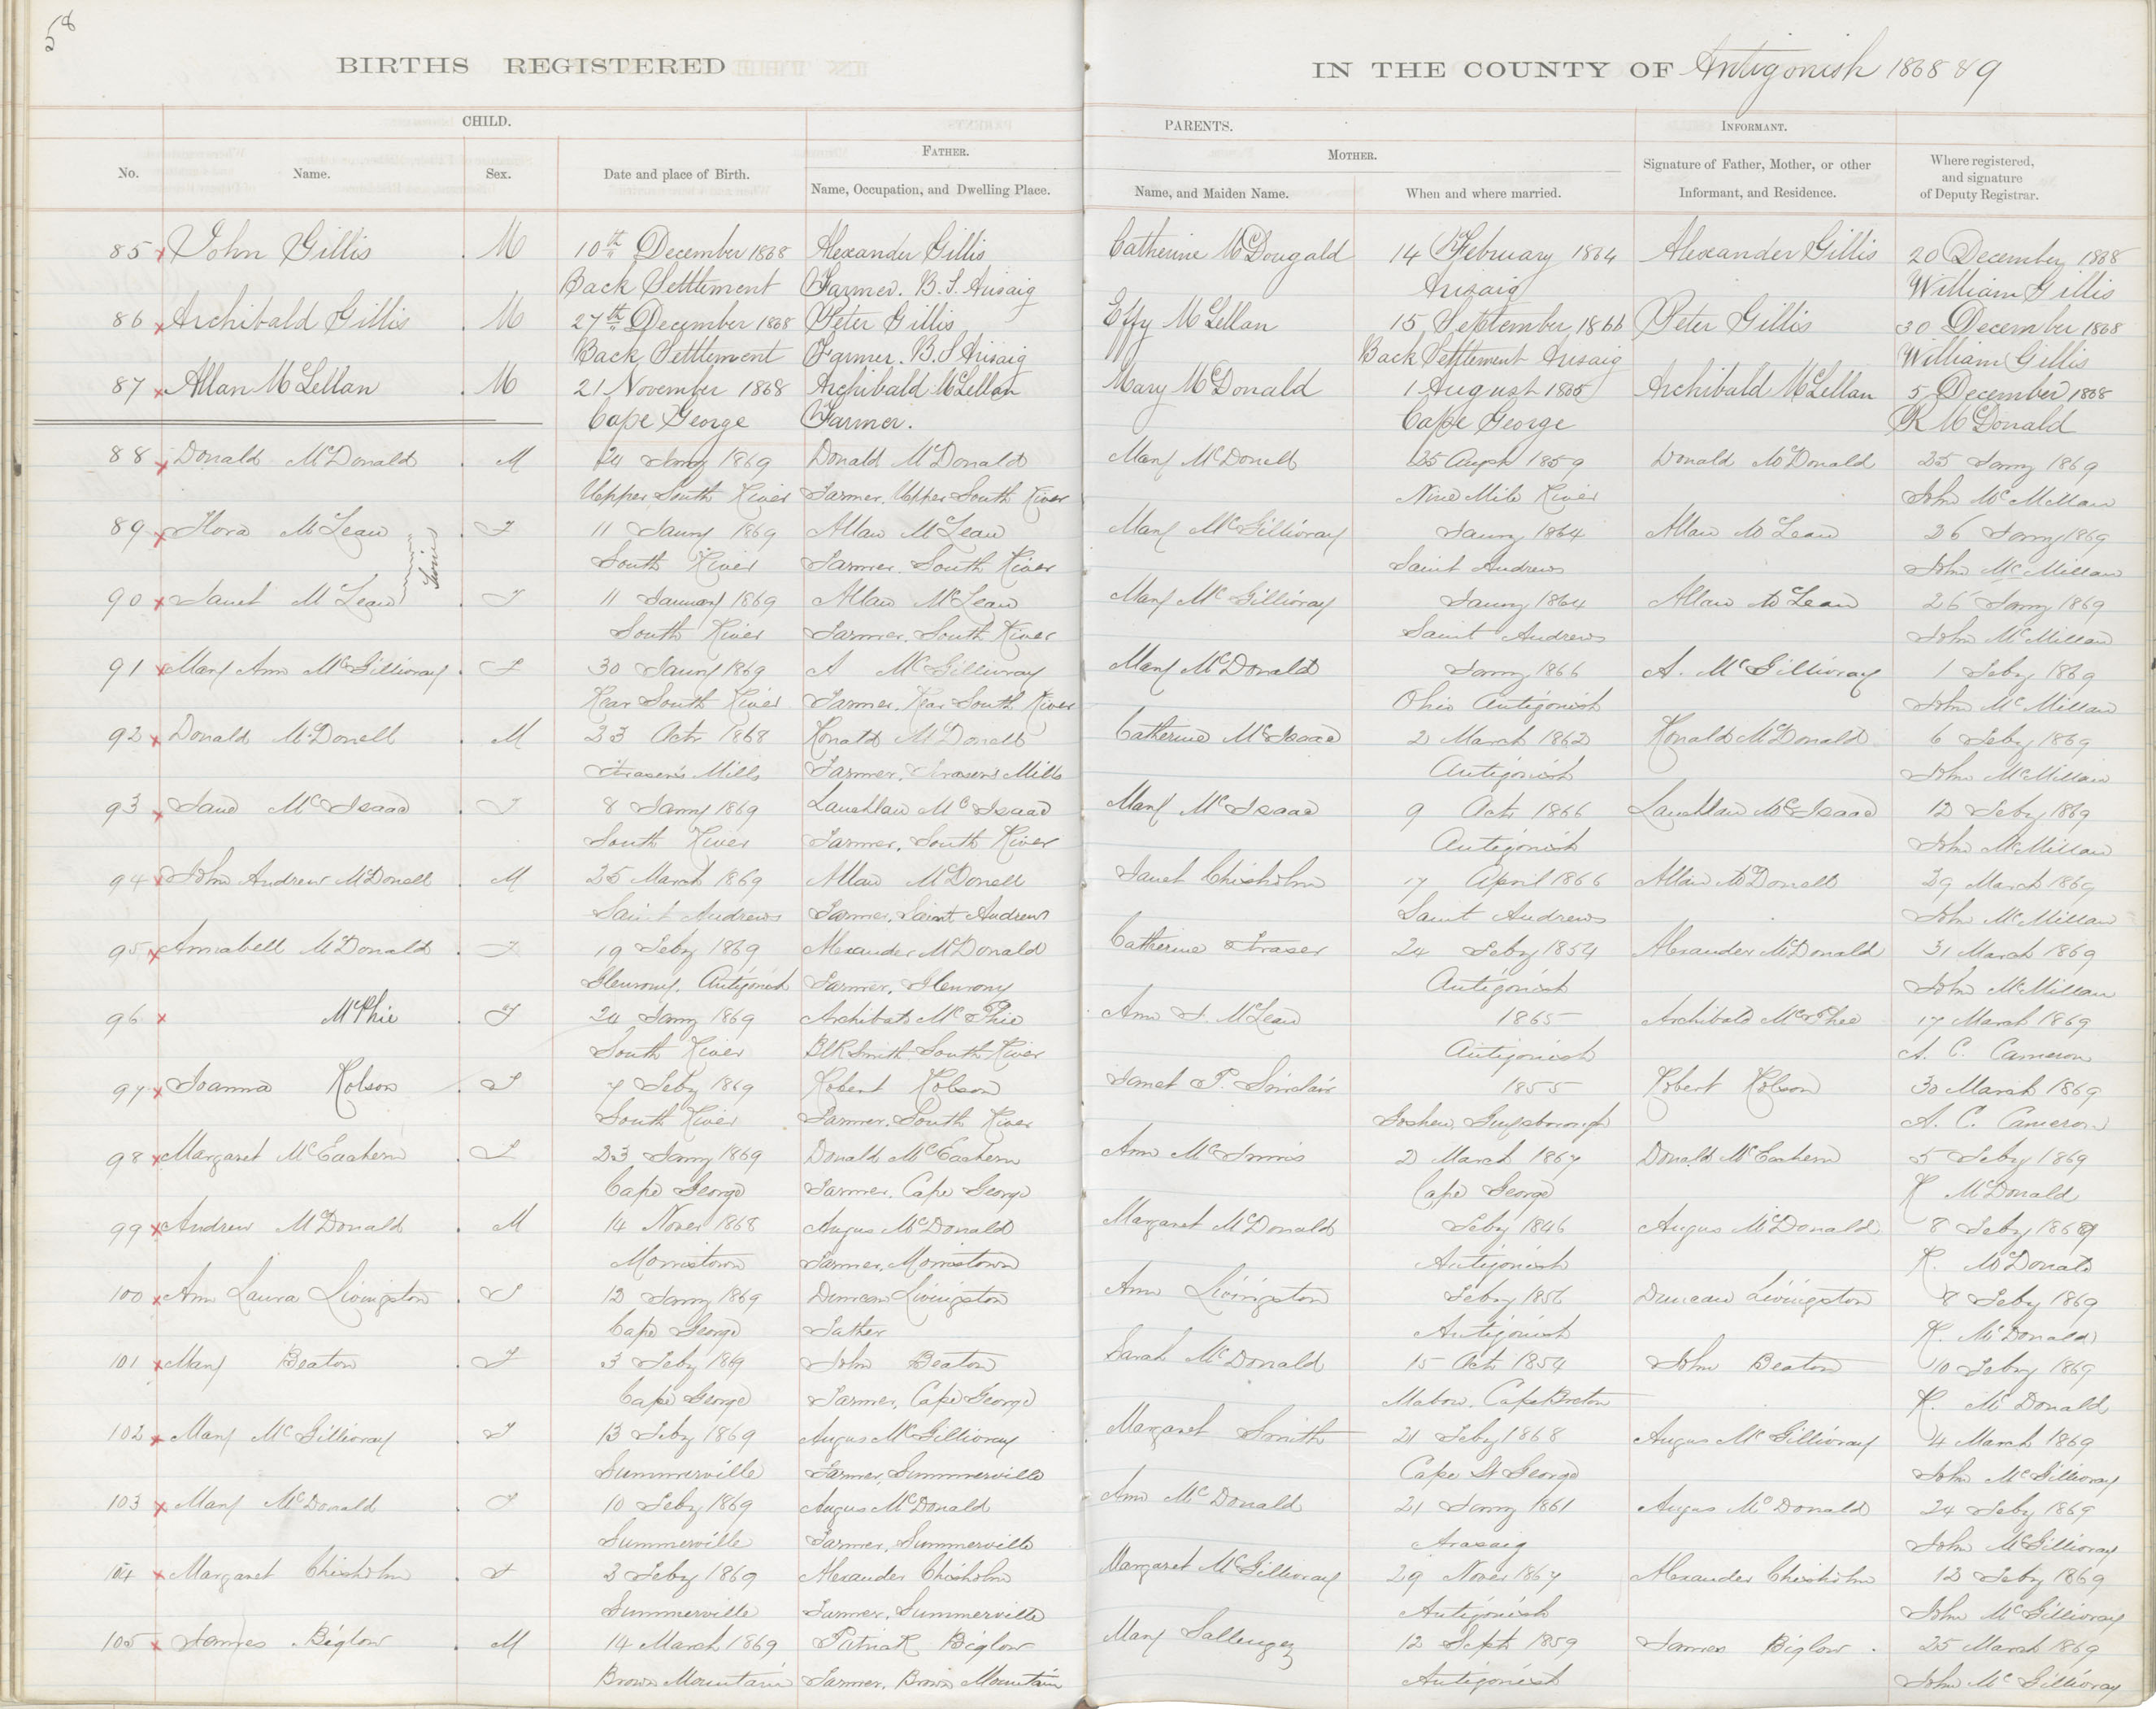 58
BIRTHS REGISTERED IN THE COUNTY OF Antigonish 1868 & 9
CHILD. PARENTS. INFORMANT.
FATHER. MOTHER.
No. Name. Sex. Date and place of Birth. Name, Occupation, and Dwelling Place. Name, and Maiden Name. When and where married. Signature of Father, Mother, or other Informant, and Residence. Where registered, and signature of Deputy Registrar.
85 x John Gillis . M 10th December 1868 Alexander Gillis Catherine McDougald 14 February 1864 Alexander Gillis 20 December 1868
Back Settlement Farmer. B. S. Arisaig Arisaig William Gillis
86 x Archibald Gillis . M 27th December 1868 Peter Gillis Effy McLellan 15 September 1866 Peter Gillis 30 December 1868
Back Settlement Farmer. B. S Arisaig Back Settlement Arisaig William Gillis
87 x Allan McLellan . M 21 November 1868 Archibald McLellan Mary McDonald 1 August 1865 Archibald McLellan 5 December 1868
Cape George Farmer. Cape George R McDonald
88 x Donald McDonald . M 24 Jany 1869 Donald McDonald Mary McDonell 25 Augst 1859 Donald McDonald 25 Jany 1869
Upper South River Farmer, Upper South River Nine Mile River John McMillan
89 x Flora McLean . F 11 Jauny 1869 Allan McLean Mary McGillivray Jauny 1864 Allan McLean 26 Jany 1869
Twins
South River Farmer. South River Saint Andrews John McMillan
90 x Janet McLean . F 11 January 1869 Allan McLean Mary McGillivray Jauny 1864 Allan McLean 26 Jany 1869
South River Farmer, South River Saint Andrews John McMillan
91 x Mary Ann McGillivray . F 30 Jauny 1869 A McGillivray Mary McDonald Jany 1866 A. McGillivray 1 Feby 1869
Rear South River Farmer, Rear South River Ohio Antigonish John McMillan
92 x Donald McDonell . M 23 Octr 1868 Ronald McDonell Catherine McIsaac 2 March 1862 Ronald McDonald 6 Feby 1869
Frasers Mills Farmer, Frasers Mills Antigonish John McMillan
93 x Jane McIsaac . F 8 Jany 1869 Lauchlan McIsaac Mary McIsaac 9 Octr 1866 Lauchlan McIsaac 12 Feby 1869
South River Farmer, South River Antigonish John McMillan
94 x John Andrew McDonell . M 25 March 1869 Allan McDonell Janet Chisholm 17 April 1866 Allan McDonell 29 March 1869
Saint Andrews Farmer, Saint Andrews Saint Andrews John McMillan
95 x Annabell McDonald . F 19 Feby 1869 Alexander McDonald Catherine Fraser 24 Feby 1854 Alexander McDonald 31 March 1869
Glenroy, Antigonish Farmer, Glenroy Antigonish John McMillan
96 x McPhie . F 24 Jany 1869 Archibald McPhie Ann F. McLean 1865 Archibald McPhee 17 March 1869
South River BlkSmith South River Antigonish A. C. Cameron
97 x Joanna Robson . F 7 Feby 1869 Robert Robson Janet P. Sinclair 1855 Robert Robson 30 March 1869
South River Farmer, South River Goshen, Guysborough A. C. Cameron
98 x Margaret McEachern . F 23 Jany 1869 Donald McEachern Ann McInnis 2 March 1867 Donald McEachern 5 Feby 1869
Cape George Farmer, Cape George Cape George R McDonald
99 x Andrew McDonald . M 14 Nover 1868 Angus McDonald Margaret McDonald Feby 1846 Angus McDonald 8 Feby 1869
Morristown Farmer, Morristown Antigonish R. McDonald
100 x Ann Laura Livingston . F 12 Jany 1869 Duncan Livingston Ann Livingston Feby 1856 Duncan Livingston 8 Feby 1869
Cape George Father Antigonish R. McDonald
101 x Mary Beaton . F 3 Feby 1869 John Beaton Sarah McDonald 15 Oct 1854 John Beaton 10 Feby 1869
Cape George Farmer, Cape George Mabow, Cape Breton R. McDonald
102 x Mary McGillivray . F 13 Feby 1869 Angus McGillivray Margaret Smith 21 Feby 1868 Angus McGillivray 4 March 1869
Summerville Farmer, Summerville Cape St George John McGillivray
103 x Mary McDonald . F 10 Feby 1869 Angus McDonald Ann McDonald 21 Jany 1861 Angus McDonald 24 Feby 1869
Summerville Farmer, Summerville Arasaig John McGillivray
104 x Margaret Chisholm . F 3 Feby 1869 Alexander Chisholm Margaret McGillivray 29 Nover 1867 Alexander Chisholm 12 Feby 1869
Summerville Farmer, Summerville Antigonish John McGillivray
105 x James Biglow . M 14 March 1869 Patrick Biglow Mary Sallengez 12 Sept 1859 James Biglow . 25 March 1869
Brown Mountain Farmer, Brown Mountain Antigonish John McGillivray